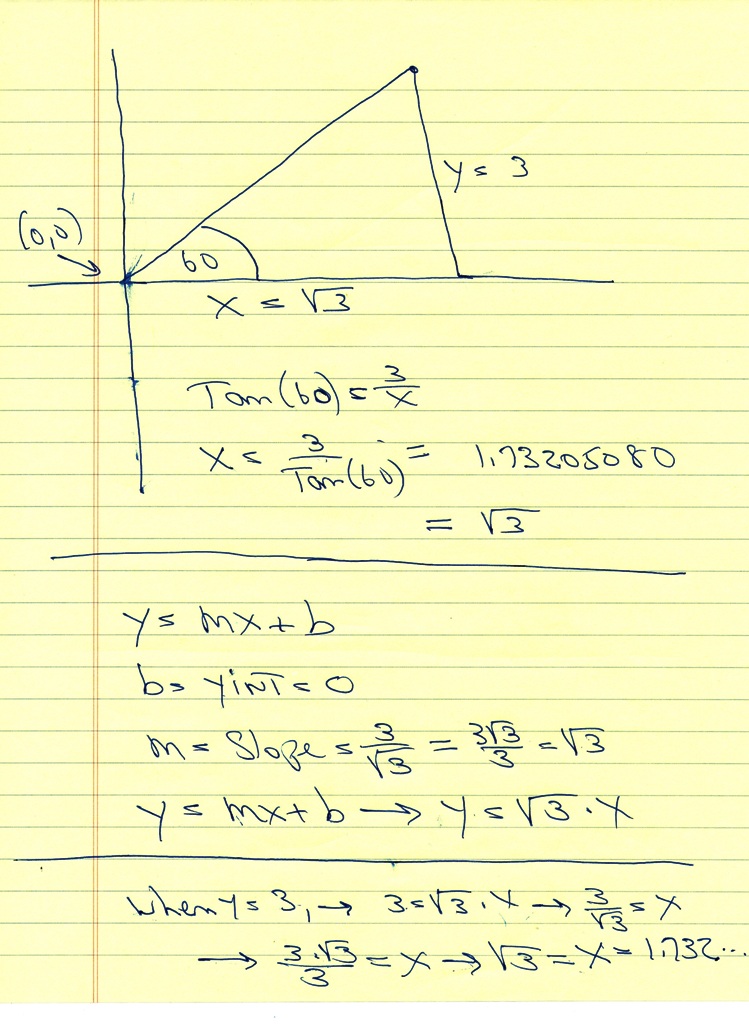 y = 3
(0,0)
60
x = √3
Tan(60) = 3/x
x = 3/Tan(60) = 1.73205080
= √3
y = mx + b
b = yiNT = 0
m = Slope = 3/√3 = 3√3/3 = √3
y = mx + b → y = √3 · x
when y = 3, → 3 = √3 · x → 3/√3 = x
→ 3·√3/3 = x → √3 = x = 1.732...